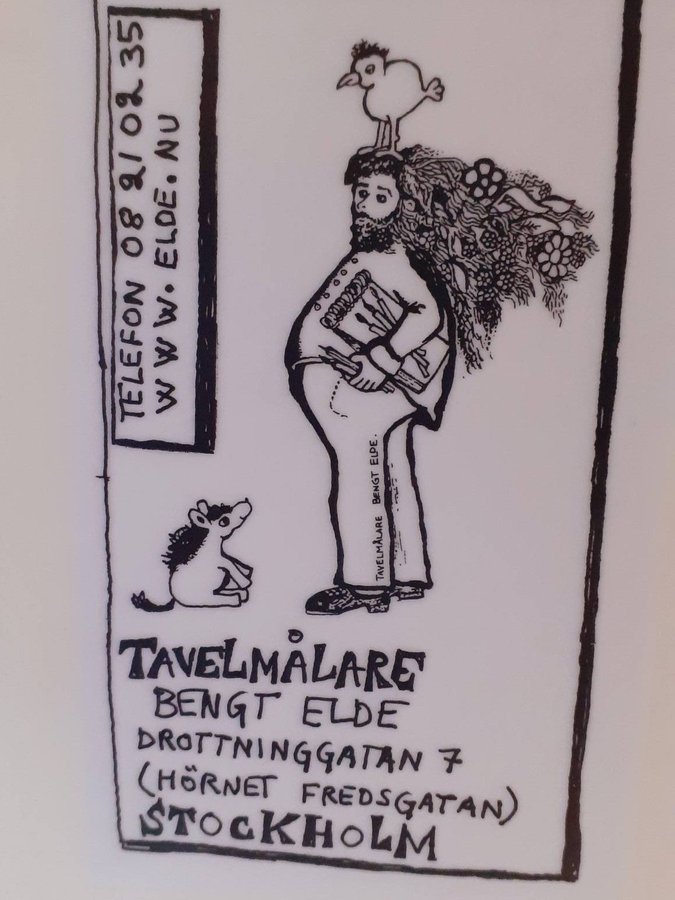 TELEFON 08 21 02 35
WWW.ELDE.NU
TAVELMÅLARE BENGT ELDE.
TAVELMÅLARE
BENGT ELDE
DROTTNINGGATAN 7
(HÖRNET FREDSGATAN)
STOCKHOLM